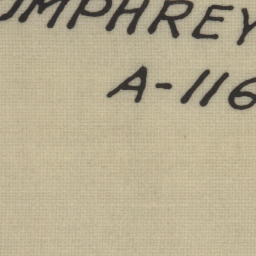 UMPHREY
A-116